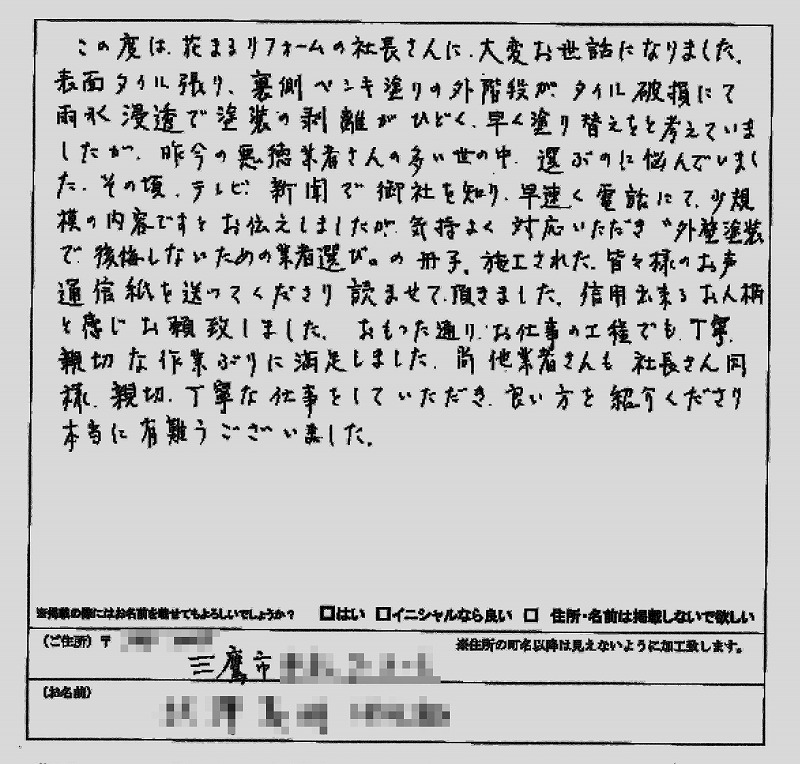 この度は、花まるリフォームの社長さんに、大変お世話になりました。
表面タイル張り、裏側ペンキ塗りの外階段が、タイル破損にて
雨水浸透で塗装の剥離がひどく、早く塗り替えをと考えていま
したが、昨今の悪徳業者さんの多い世の中、選ぶのに悩んでいまし
た。その頃、テレビ、新聞で御社を知り、早速く電話にて、少規
模の内容ですとお伝えしましたが、気持よく対応いただき“外壁塗装
で、後悔しないための業者選び”の冊子、施工された、皆々様のお声
通信紙を送ってくださり読ませて頂きました。信用出来るお人柄
と感じお願致しました。おもった通り、お仕事の工程でも、丁寧、
親切な作業ぶりに満足しました。尚他業者さんも社長さん同
様、親切、丁寧な仕事をしていただき、良い方を紹介くださり
本当に有難うございました。
※掲載の際にはお名前を載せてもよろしいでしょうか？ □はい □イニシャルなら良い □ 住所・名前は掲載しないで欲しい
(ご住所) 〒 ※住所の町名以降は見えないように加工致します。
三鷹市
(お名前)